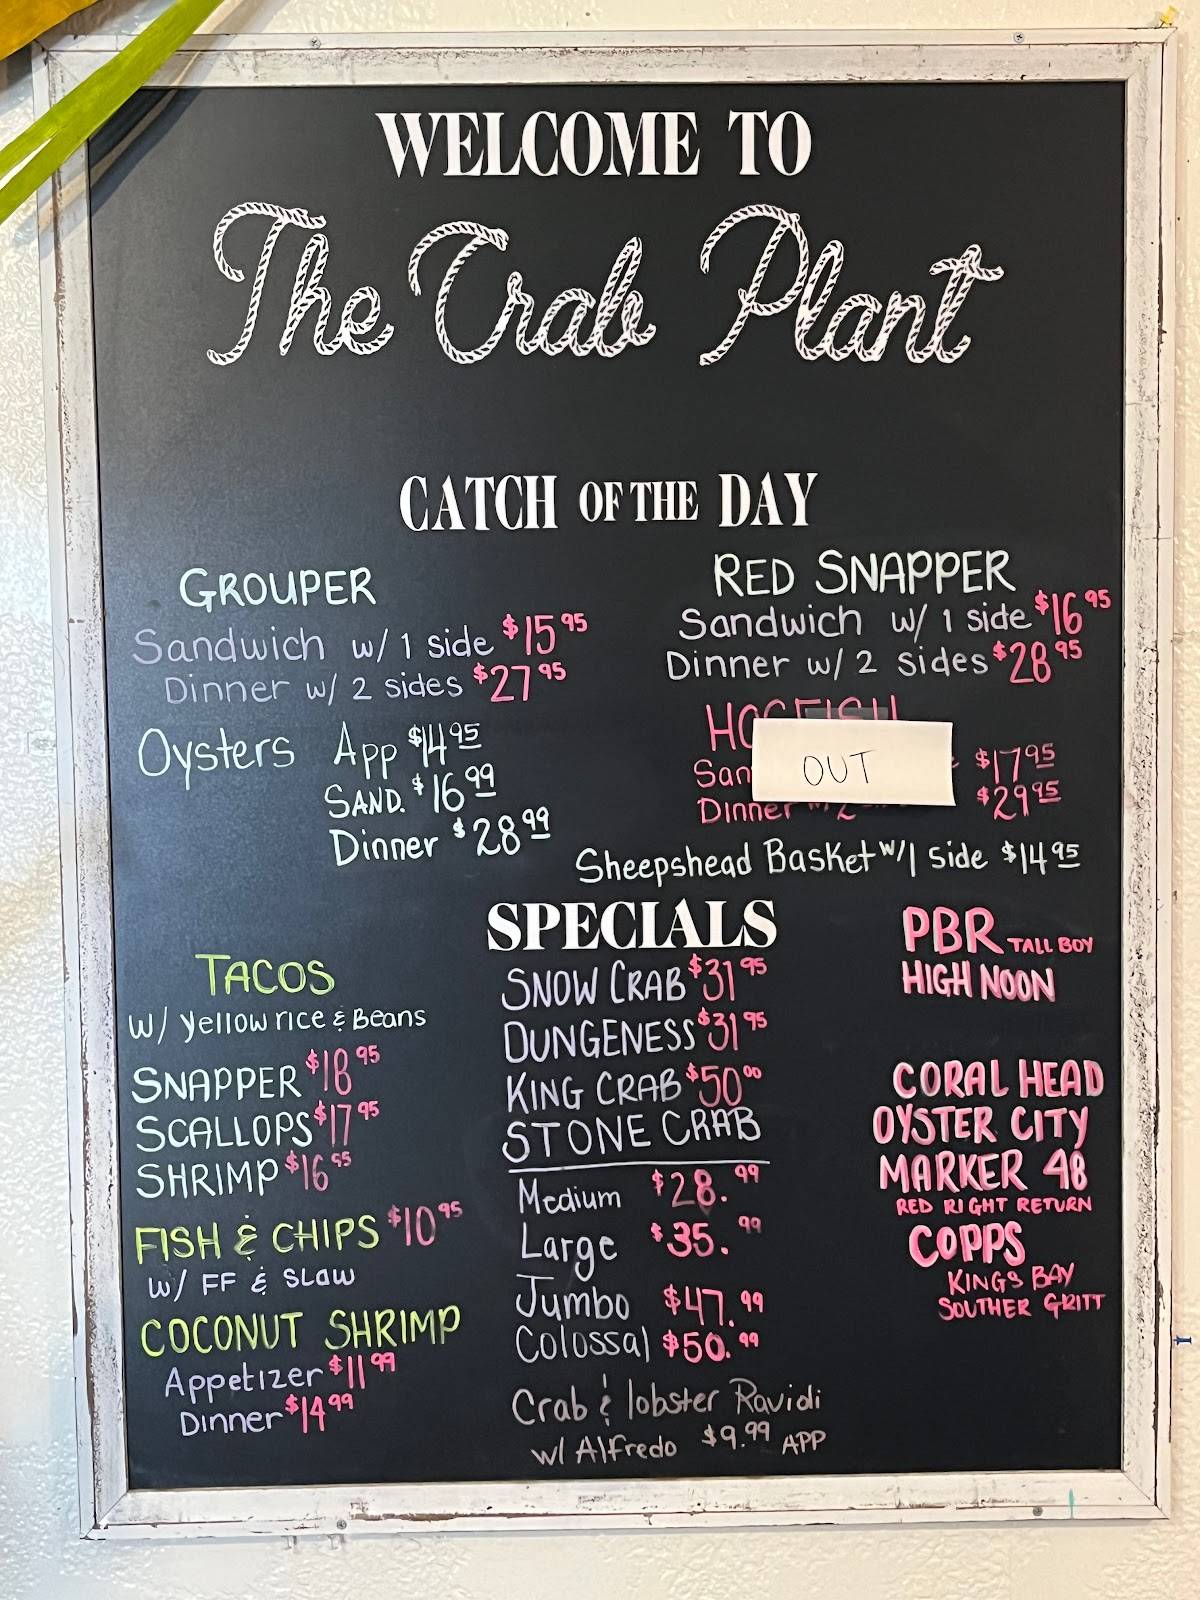 WELCOME TO
The Crab Plant
CATCH OF THE DAY
GROUPER
Sandwich w/ 1 side $15.95
Dinner w/ 2 sides $27.95
Oysters App $14.95
SAND. $16.99
Dinner $28.99
RED SNAPPER
Sandwich w/ 1 side $16.95
Dinner w/ 2 sides $28.95
HOGFISH
OUT
$17.95
Dinner $29.95
Sheepshead Basket w/1 side $14.95
TACOS
w/ yellow rice & Beans
SNAPPER $18.95
SCALLOPS $17.95
SHRIMP $16.95
FISH & CHIPS $10.95
w/ FF & SLAW
COCONUT SHRIMP
Appetizer $11.99
Dinner $14.99
SPECIALS
SNOW CRAB $31.95
DUNGENESS $31.95
KING CRAB $50.00
STONE CRAB
Medium $28.99
Large $35.99
Jumbo $47.99
Colossal $50.99
Crab & lobster Ravidi
w/ Alfredo $9.99 APP
PBR TALL BOY
HIGH NOON
CORAL HEAD
OYSTER CITY
MARKER 48
RED RIGHT RETURN
COPPS
KINGS BAY
SOUTHER GRITT